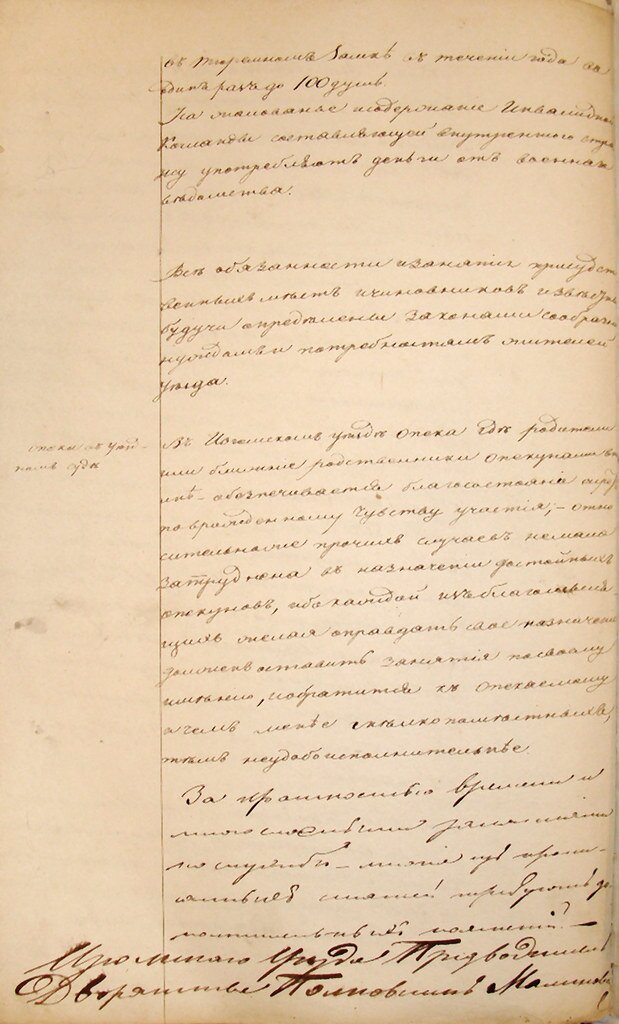 въ тюремномъ Замкѣ въ теченіи года за
одинъ разъ до 100 душъ.
На жалованье и содержаніе Инвалидной
Команды составляющей внутреннюю стра
жу употребляютъ деньги отъ военнаго
вѣдомства.
Всѣ обязанности и занятія присудст
венныхъ мѣстъ и чиновниковъ
будучи опредѣлены Законами сообразны
нуждамъ и потребностямъ жителей
уѣзда.
опека въ уѣзд-
номъ судѣ
Въ уѣздѣ опека гдѣ родители
или ближніе родственники опекунами
обезпечивается благосостояніе
по врожденному чувству участія; - отно
сительно же прочихъ случаевъ немало
затруднена въ назначеніи достойныхъ
опекуновъ, ибо каждой изъ благомысля
щихъ желая оправдать свое назначеніе
долженъ оставить занятія по своему
имѣнію, и обратится къ опекаемому
и чемъ менѣе мѣлкопомѣстныхъ,
тѣмъ неудобоисполнительнѣе.
За краткостью времени и
занятіями
по службѣ - многія изъ
статей требуютъ до
полнительныхъ поясненій. -
уѣзда Предводитель
Дворянства Полковникъ